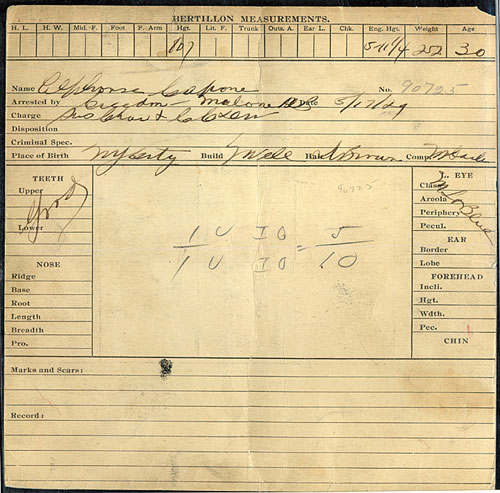 BERTILLON MEASUREMENTS.
H. L. H. W. Mid. F. Foot F. Arm Hgt. Lit. F. Trunk Outs. A. Ear L. Chk. Eng. Hgt. Weight Age
107 5-11 1/4 252 30
Name Alphonse Capone No. 90725
Arrested by Creedon - Malone Date 5/17/29
Charge Sus Char & C C Dew
Disposition
Criminal Spec.
Place of Birth NY City Build Hair Brown Comp.
TEETH
Upper
Good
Lower
NOSE
Ridge
Base
Root
Length
Breadth
Pro.
90725
1 U IO 5
1 U IO = 10
L. EYE
Class
Areola
Periphery
Blue
Pecul.
EAR
Border
Lobe
FOREHEAD
Incli.
Hgt.
Wdth.
Pec. 1
CHIN
Marks and Scars:
Record: